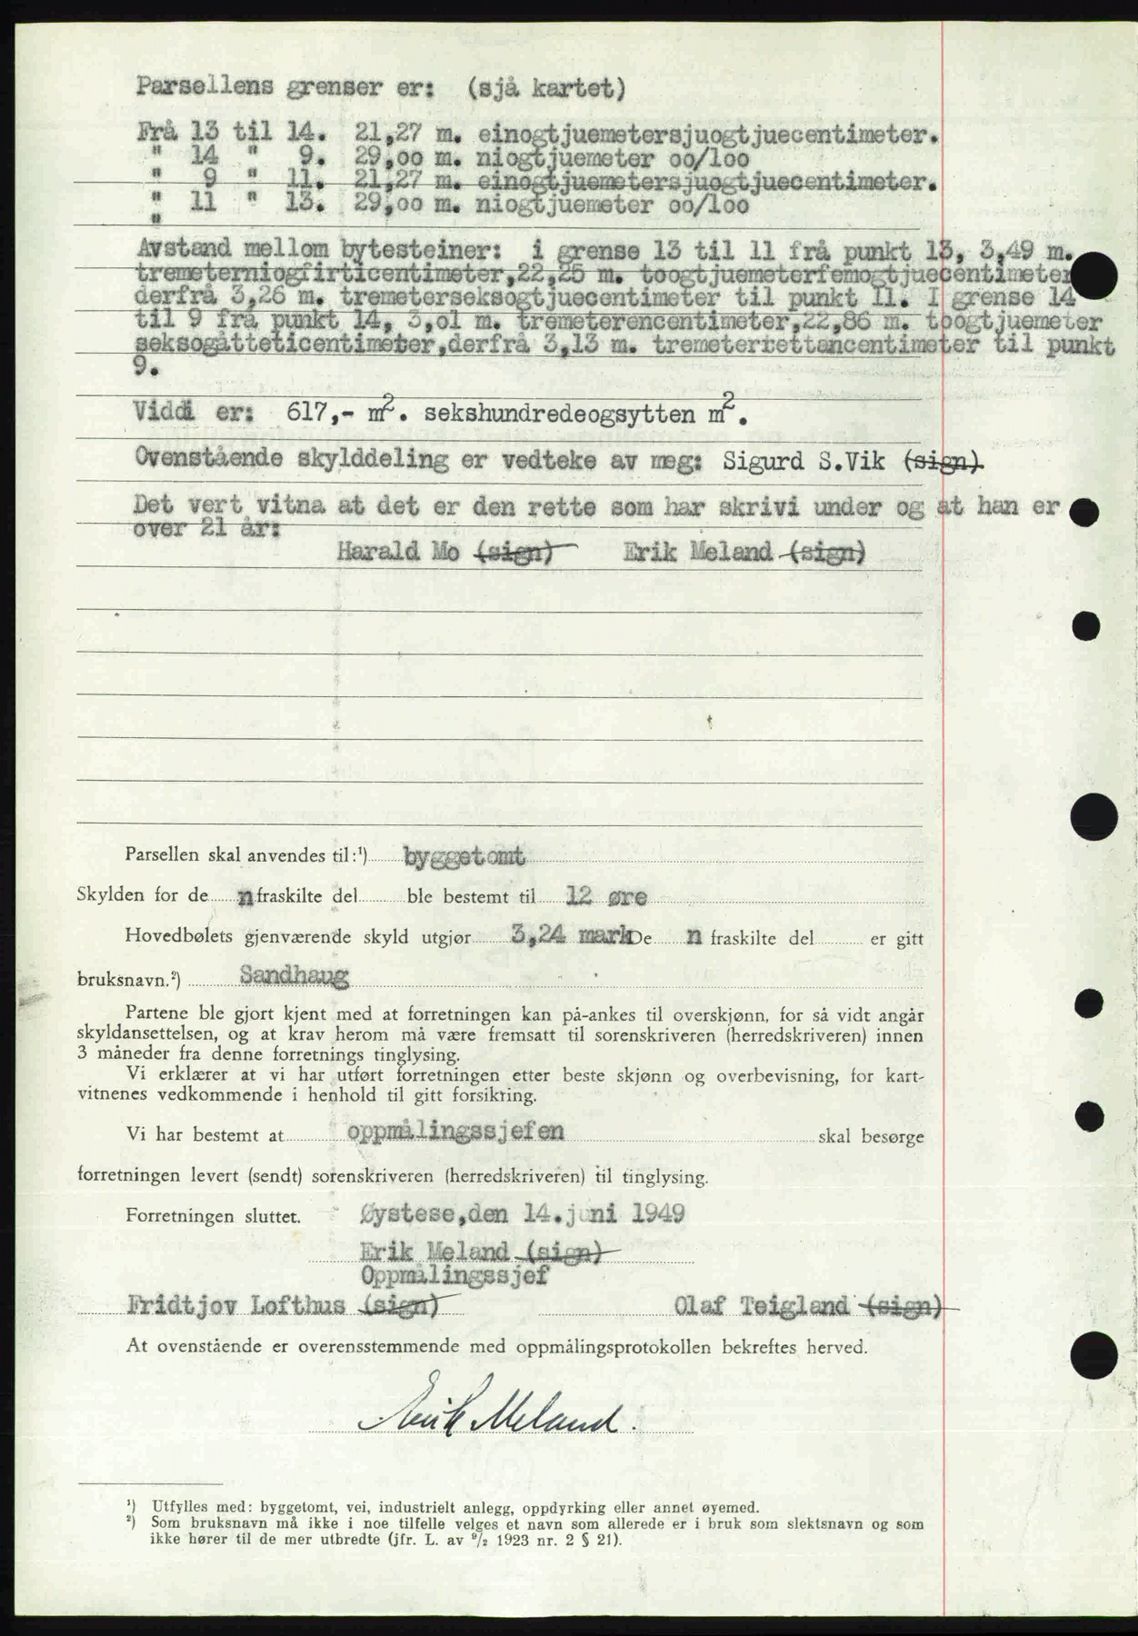 Parsellens grenser er: (sjå kartet)
Frå 13 til 14. 21,27 m. einogtjuemetersjuogtjuecentimeter.
" 14 " 9. 29,oo m. niogtjuemeter oo/loo
" 9 " 11. 21,27 m. einogtjuemetersjuogtjuecentimeter.
" 11 " 13. 29,oo m. niogtjuemeter oo/loo
"
Avstand mellom bytesteiner: i grense 13 til 11 frå punkt 13, 3,49 m.
tremeterniogfirticentimeter,22,25 m. toogtjuemeterfemogtjuecentimeter
derfrå 3,26 m. tremeterseksogtjuecentimeter til punkt 11. I grense 14
til 9 frå punkt 14, 3,o1 m. tremeterencentimeter,22,86 m. toogtjuemeter
seksogåtteticentimeter,derfrå 3,13 m. tremeterrettancentimeter til punkt
9.
Viddi er: 617,- m². sekshundredeogsytten m².
Ovenstående skylddeling er vedteke av meg: Sigurd S.Vik (sign)
Det vert vitna at det er den rette som har skrivi under og at han er
over 21 år:
Harald Mo (sign) Erik Meland (sign)
Parsellen skal anvendes til:¹) byggetomt
Skylden for de n fraskilte del ble bestemt til 12 øre
Hovedbølets gjenværende skyld utgjør 3,24 mark De n fraskilte del er gitt
bruksnavn.²) Sandhaug
Partene ble gjort kjent med at forretningen kan på-ankes til overskjønn, for så vidt angår
skyldansettelsen, og at krav herom må være fremsatt til sorenskriveren (herredskriveren) innen
3 måneder fra denne forretnings tinglysing.
Vi erklærer at vi har utført forretningen etter beste skjønn og overbevisning, for kart-
vitnenes vedkommende i henhold til gitt forsikring.
Vi har bestemt at oppmålingssjefen skal besørge
forretningen levert (sendt) sorenskriveren (herredskriveren) til tinglysing.
Forretningen sluttet. Øystese,den 14.juni 1949
Erik Meland (sign)
Oppmålingssjef
Fridtjov Lofthus (sign) Olaf Teigland (sign)
At ovenstående er overensstemmende med oppmålingsprotokollen bekreftes herved.
Erik Meland.
¹) Utfylles med: byggetomt, vei, industrielt anlegg, oppdyrking eller annet øyemed.
²) Som bruksnavn må ikke i noe tilfelle velges et navn som allerede er i bruk som slektsnavn og som
ikke hører til de mer utbredte (jfr. L. av 9/2 1923 nr. 2 § 21).